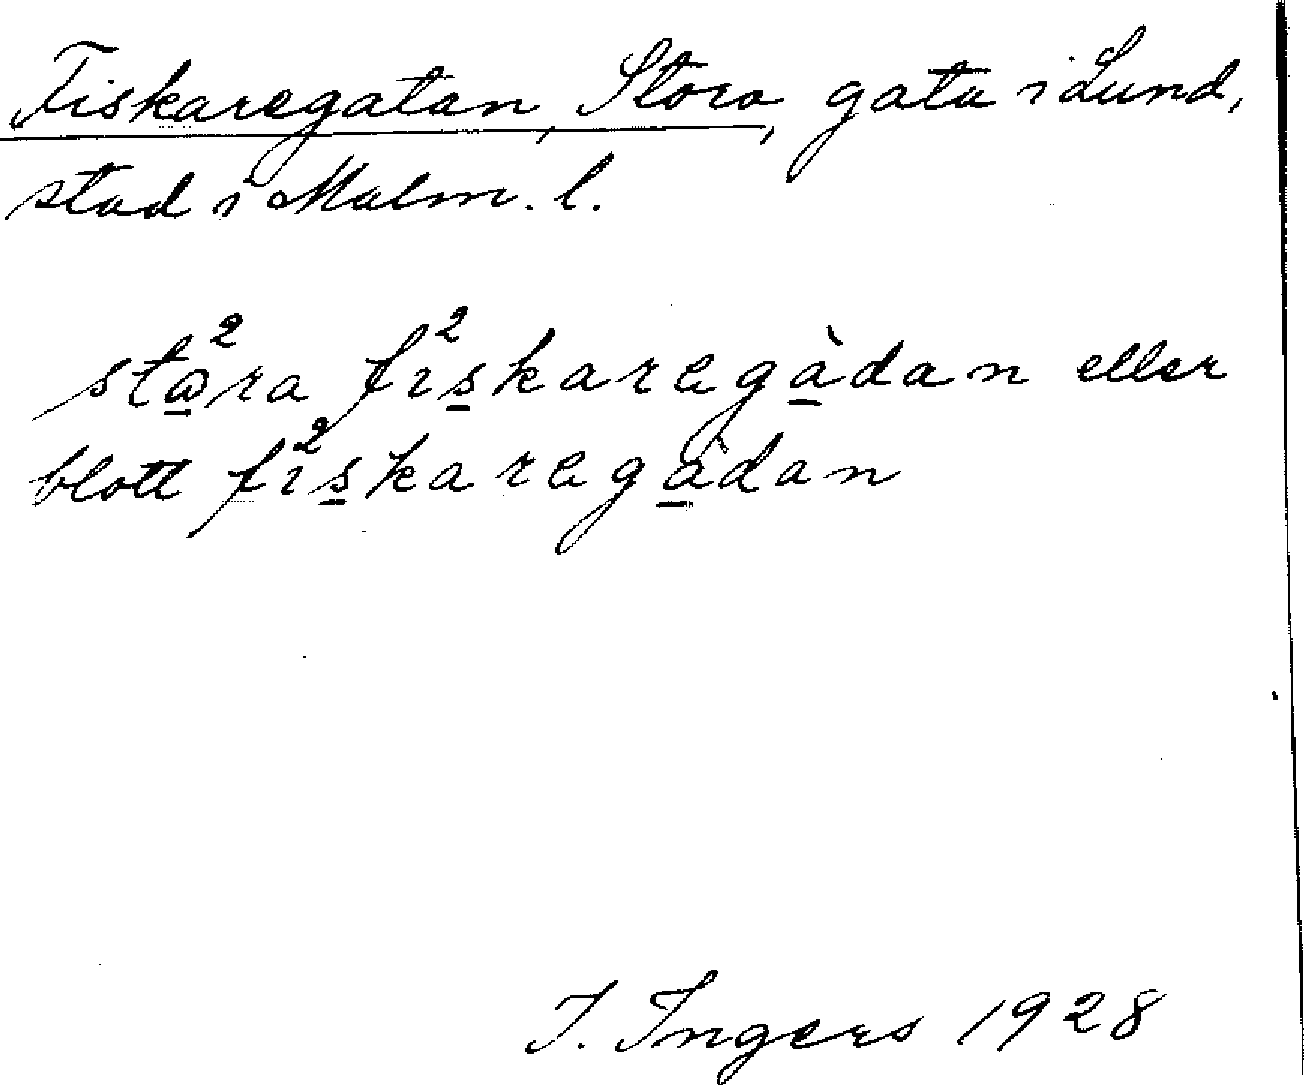 Fiskaregatan, Stora, gata i Lund,
stad i Malm. l.
stω̱²ra fi²s̱karegà̱dan eller
blott fi²s̱karegà̱dan
I. Ingers 1928